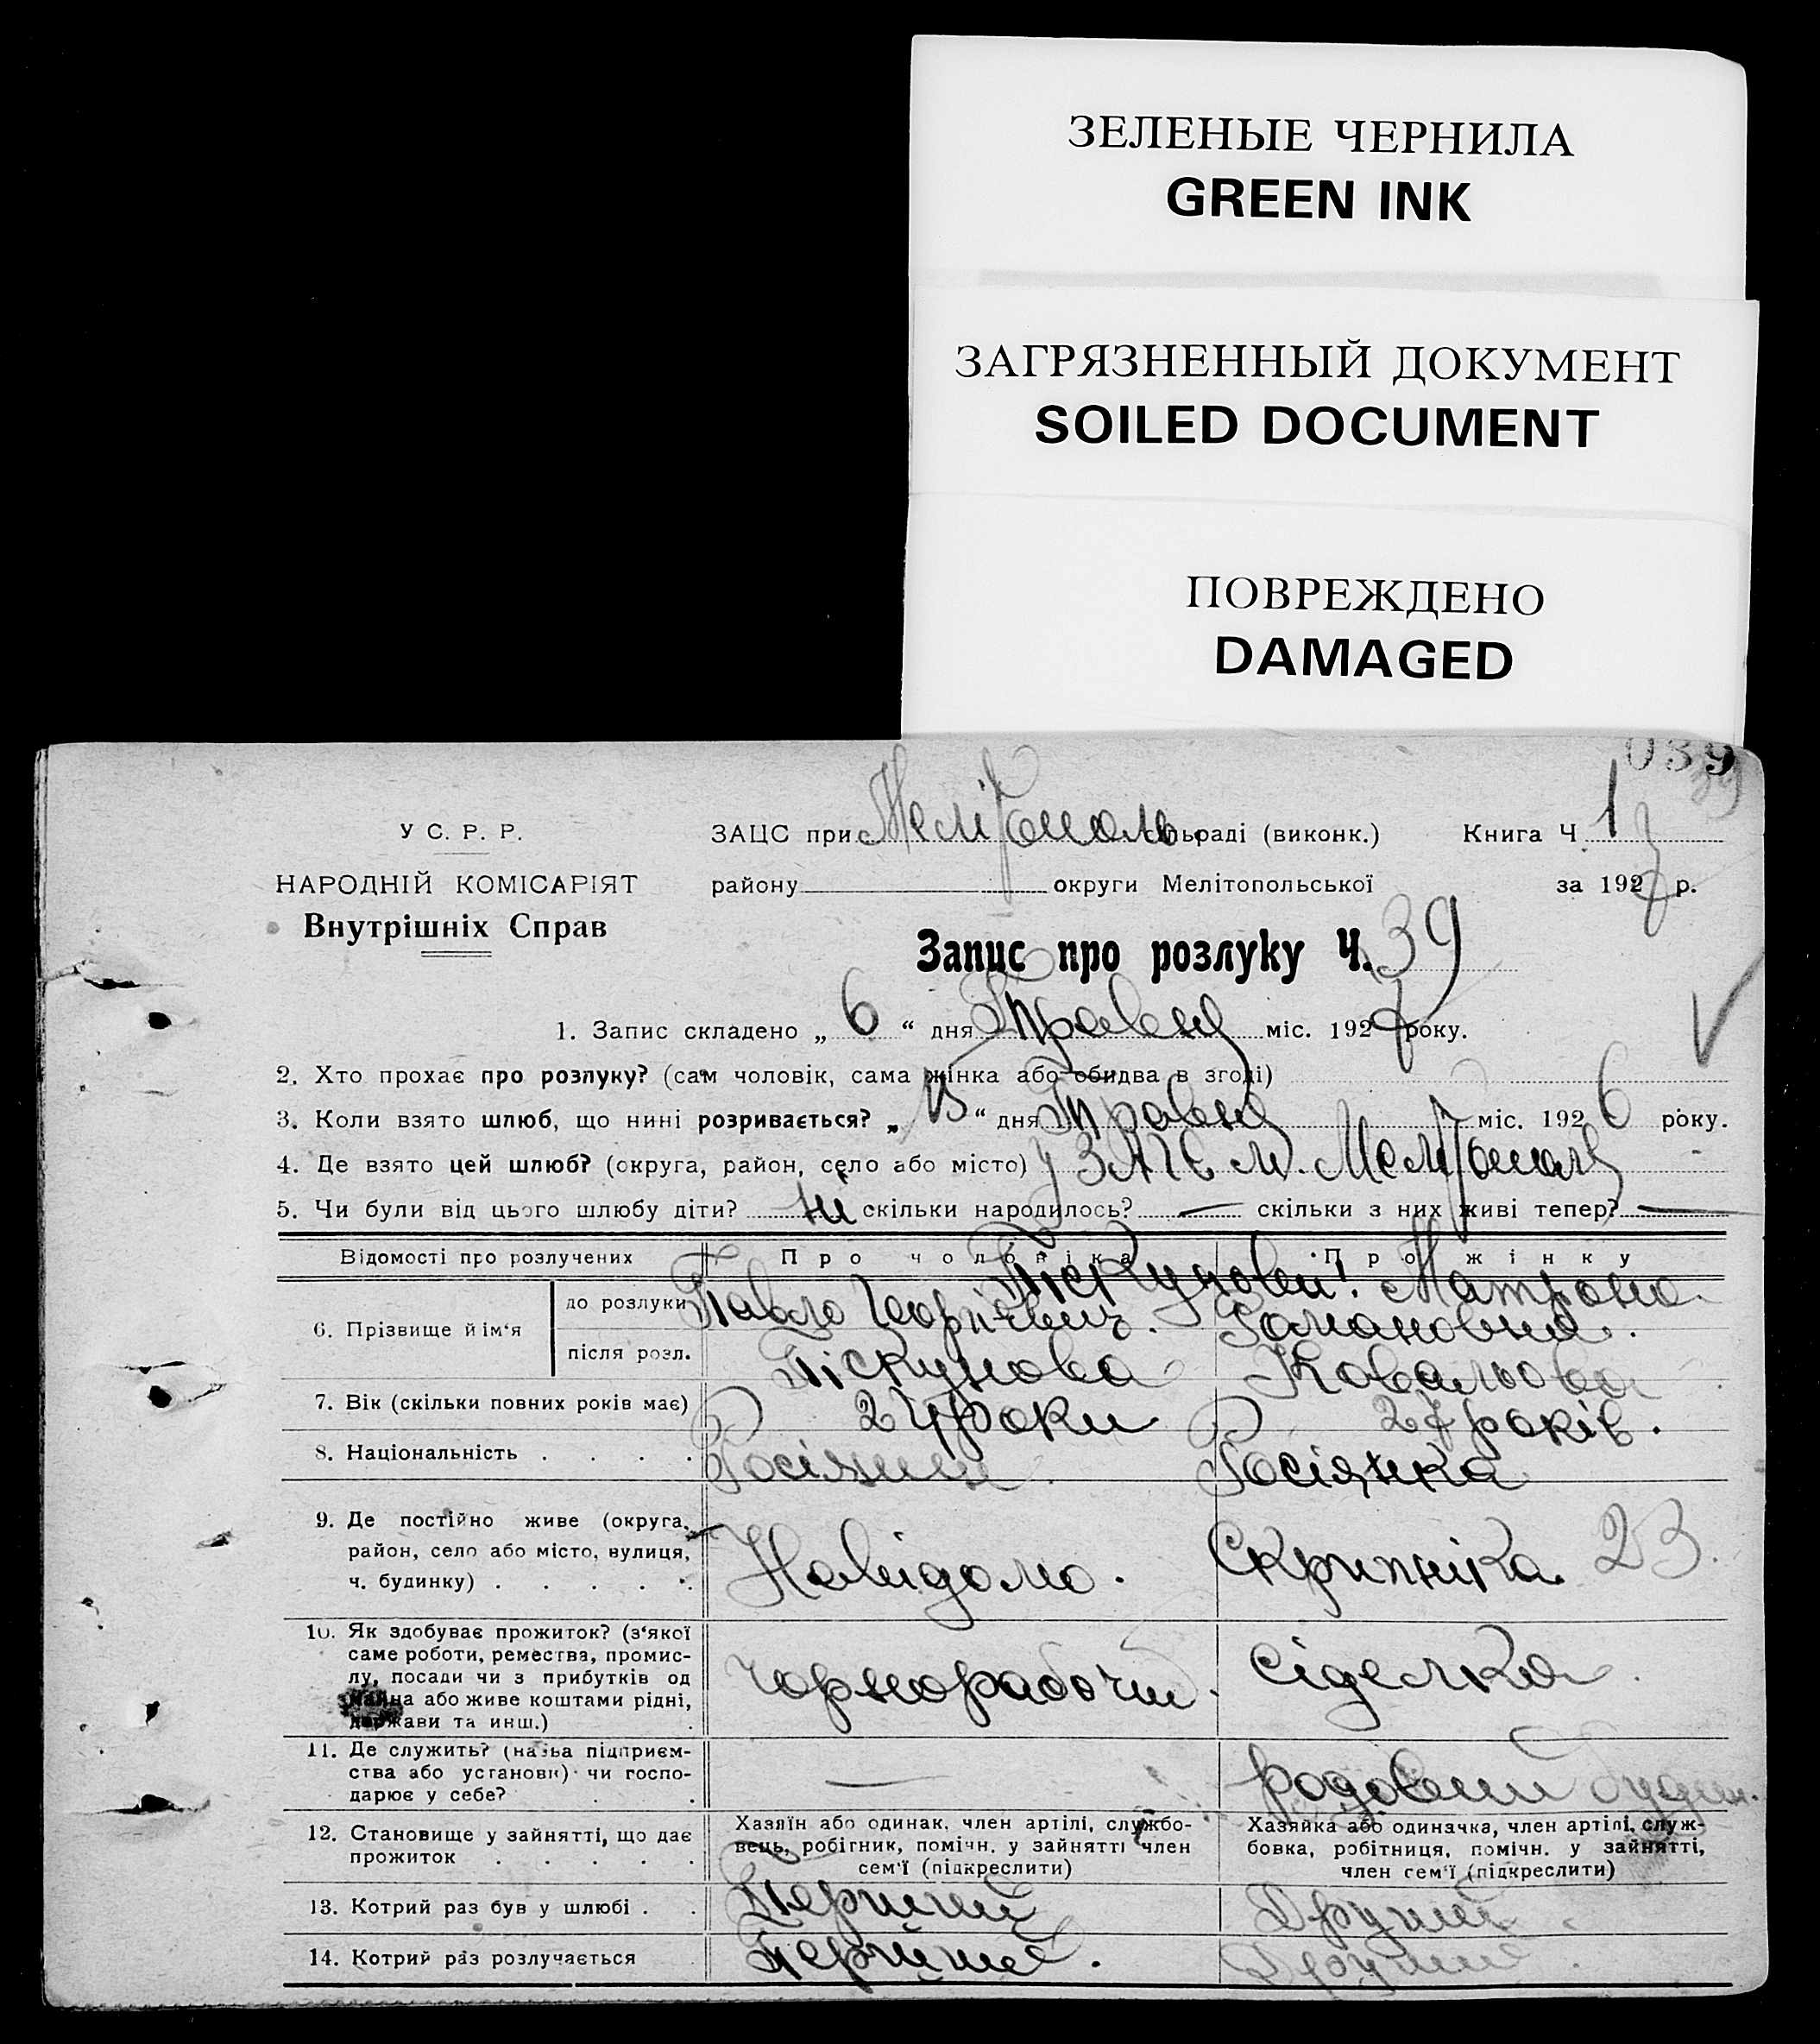 ЗЕЛЕНЫЕ ЧЕРНИЛА
GREEN INK
ЗАГРЯЗНЕННЫЙ ДОКУМЕНТ
SOILED DOCUMENT
ПОВРЕЖДЕНО
DAMAGED
039
39
У С. Р. Р.
НАРОДНІЙ КОМІСАРІЯТ
Внутрішніх Справ
ЗАЦС при Мелітополь сільраді (виконк.) Книга Ч. 1
району округи Мелітопольської за 1927 р.
Запис про розлуку Ч. 39
1. Запис складено „ 6 “ дня Травня міс. 1927 року.
2. Хто прохає про розлуку? (сам чоловік, сама жінка або обидва в згоді)
3. Коли взято шлюб, що нині розривається? „ “ дня Травня міс. 1926 року.
4. Де взято цей шлюб? (округа, район, село або місто) у ЗАГС м. Мелітополь
5. Чи були від цього шлюбу діти? ні скільки народилось? — скільки з них живі тепер? —
Відомості про розлучених Про чоловіка Про жінку
6. Прізвище й ім‘я
до розлуки Піскунови! Павло Георгієвич. Матрона Романовна.
після розл. Піскунова Ковальова
7. Вік (скільки повних років має) 24 роки 27 років.
8. Національність . . . . Росіянин. Росіянка
9. Де постійно живе (округа, район, село або місто, вулиця, ч. будинку) . . . . .
Невідомо. Скрипніка 23.
10. Як здобуває прожиток? (з‘якої саме роботи, ремества, промислу, посади чи з прибутків од майна або живе коштами рідні, держави та инш.)
Чорнорабочий. Сіделка.
11. Де служить? (назва підприємства або установи) чи господарює у себе?
— родовий будин.
12. Становище у зайнятті, що дає прожиток . . . . .
Хазяїн або одинак, член артілі, службовець, робітник, помічн. у зайнятті член сем‘ї (підкреслити)
Хазяйка або одиначка, член артілі, службовка, робітниця, помічн. у зайнятті, член сем‘ї (підкреслити)
13. Котрий раз був у шлюбі . . Перший Другий
14. Котрий раз розлучається Перший. Другий.